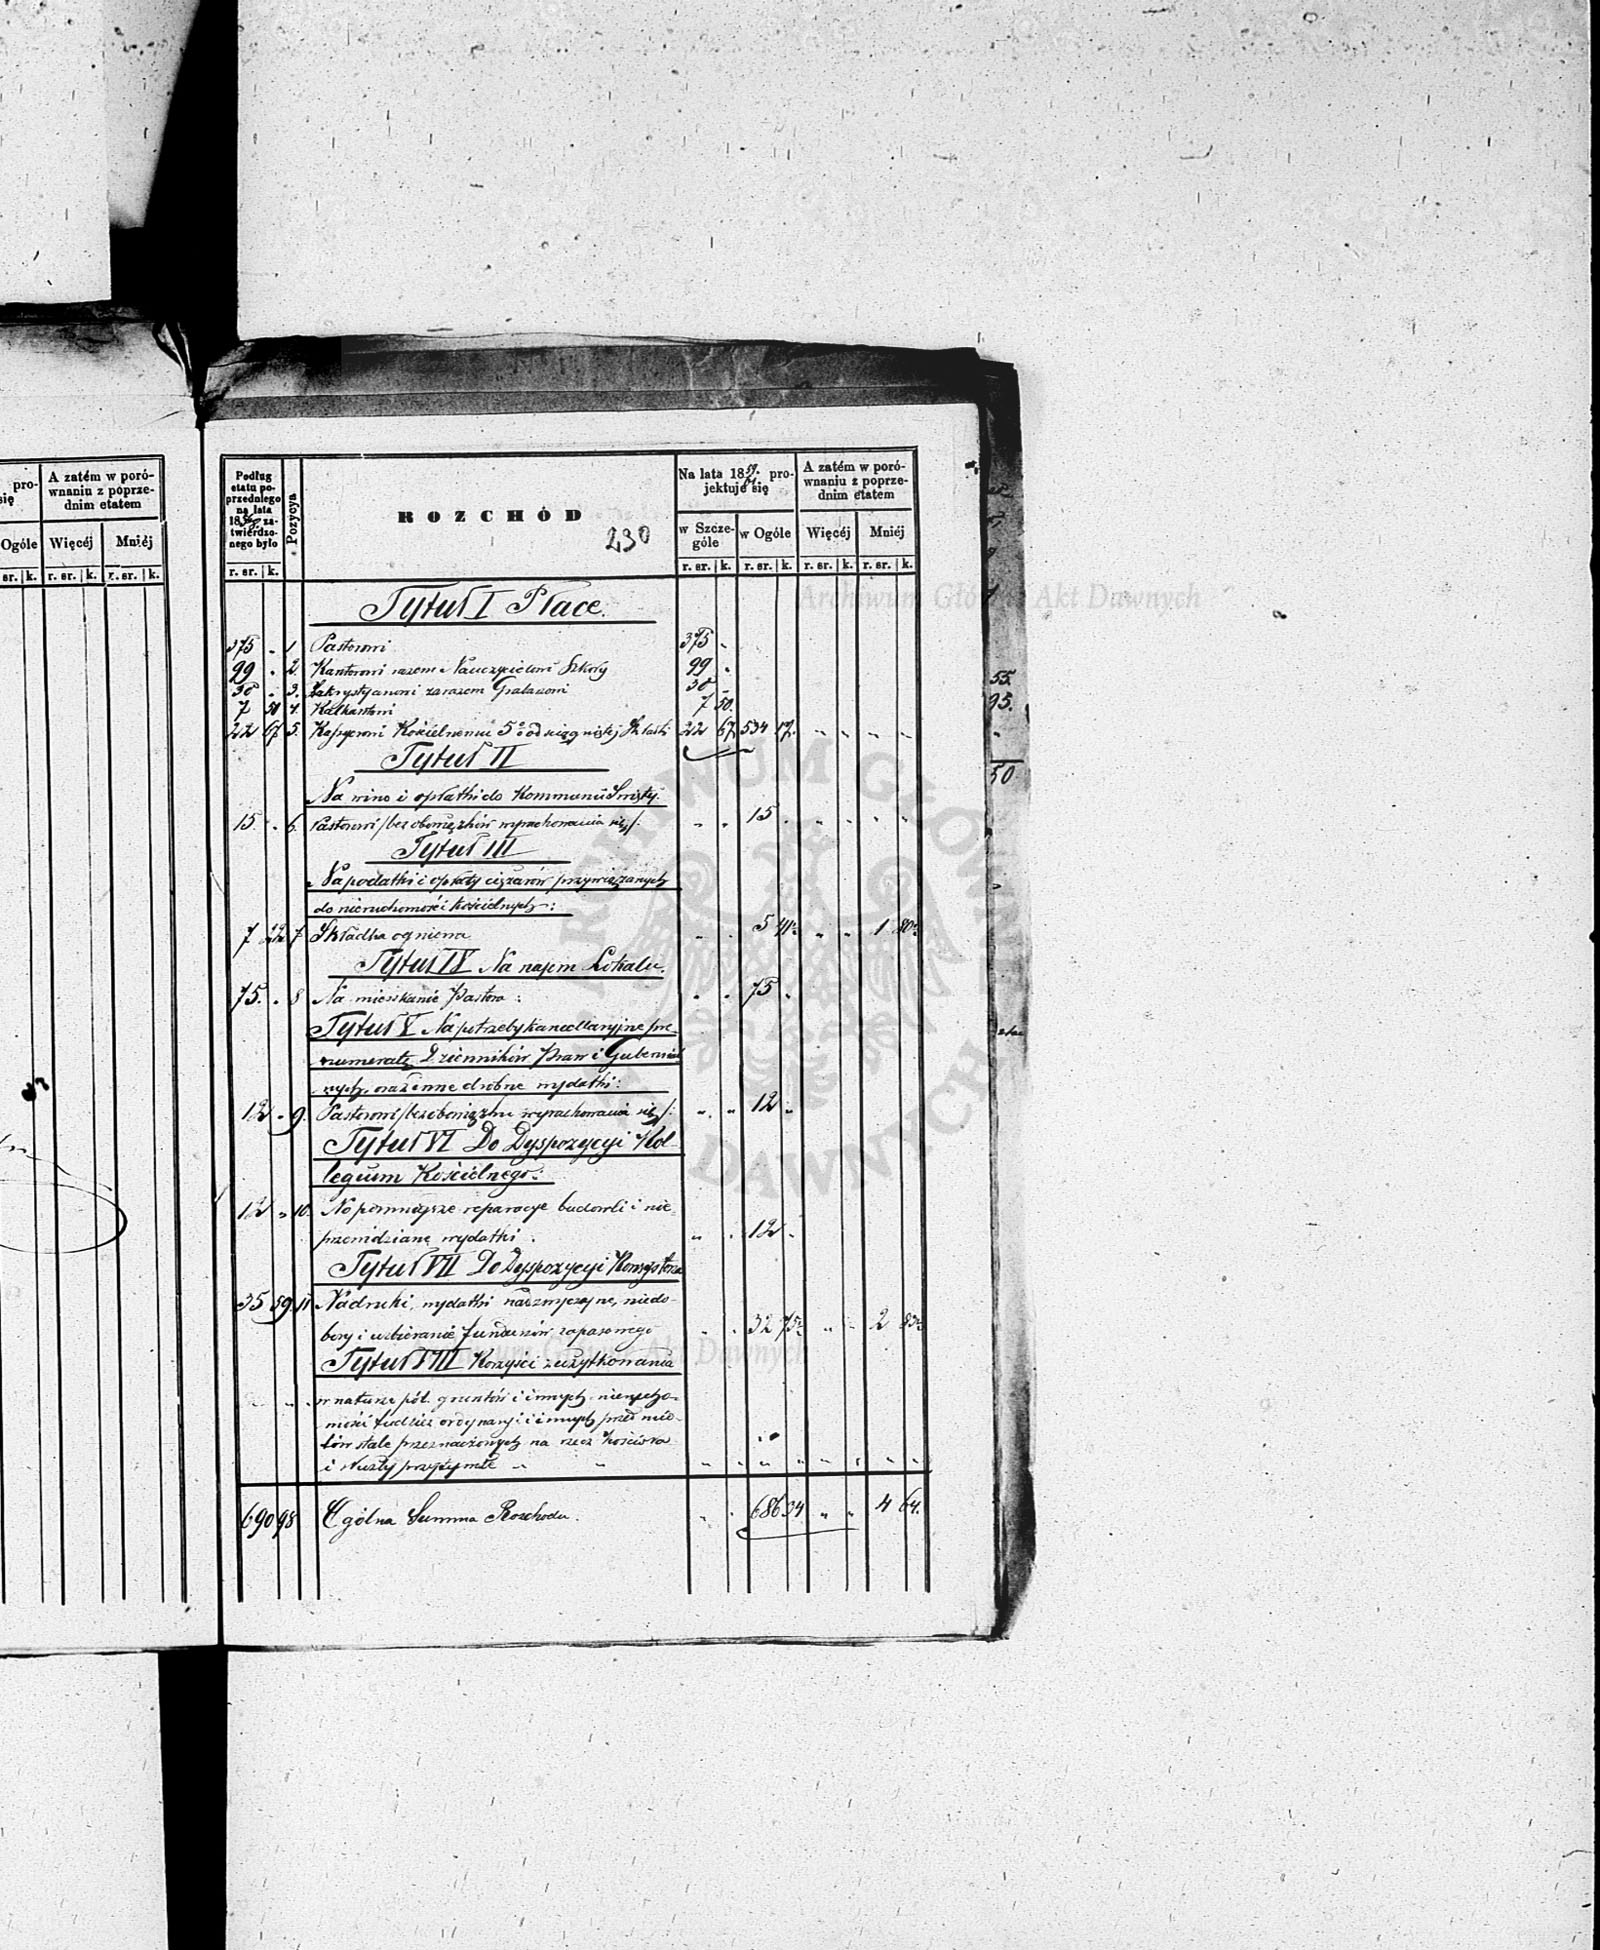 pro-
się
A zatém w poró-
wnaniu z poprze-
dnim etatem
Ogóle
Więcéj
Mniéj
sr. k. r. sr. k. r. sr. k.
Podług
etatu po-
przedniego
na lata
18 za-
twierdzo-
nego było
Pozycya
ROZCHÓD
230
Na lata 18 59/61 pro-
jektuje się
A zatém w poró-
wnaniu z poprze-
dnim etatem
w Szcze-
góle
w Ogóle
Więcéj
Mniéj
r. sr. k. r. sr. k. r. sr. k. r. sr. k. r. sr. k.
Tytuł I Płace.
375 " 1 Pastorowi 375 "
99 " 2. Kantorowi razem Nauczycielowi Szkoły 99 "
30 " 3. Zakrystyanowi zarazem Grabarzowi 30 "
7 50 4. Kalkantowi 7 50.
22 67 5. Kassyerowi Kościelnemu 5% od ściągniętej Składki 22 67 534 17. " " " "
Tytuł II
Na wino i opłatki do Kommunii Świętej.
15. " 6. Pastorowi /bez obowiązków wyrachowania się/: " " 15 " " " " "
Tytuł III
Na podatki i opłaty ciężarów przywiązanych
do nieruchomości kościelnych:
7 22 7 Składka ogniowa " " 5 41½ " " 1 80½
Tytuł IV Na najem Lokalu.
75. " 8 Na mieszkanie Pastora: " " 75 "
Tytuł V Na potrzeby kancellaryjne pre-
numeratę Dzienników Praw i Gubernial
nych, oraz inne drobne wydatki:
12 " 9. Pastorowi /bez obowiązku wyrachowania się/: " " 12 "
Tytuł VI Do Dyspozycyi Kol-
legium Kościelnego:
12 " 10. Na pomniejsze reparacye budowli i nie-
przewidziane wydatki. " " 12 "
Tytuł VII Do Dyspozycyi Konsystorza
35 59 11 Na druki, wydatki nadzwyczajne, niedo-
bory i uzbieranie funduszów zapasowego " " 32 75½ " " 2 83½
Tytuł VIII Korzyści z użytkowania
w naturze pól gruntów i innych nierucho-
mości tudzież ordynaryi i innych przedmio-
tów stale przeznaczonych na rzecz Kościoła
i Służby przyjętymże " " " " " " " " " "
690 98 Ogólna Summa Rozchodu. " " 686 34 " " 4 64.
55.
95.
"
50
Archiwum Główne Akt Dawnych
ARCHIWUM GŁÓWNE AKT DAWNYCH
Archiwum Główne Akt Dawnych